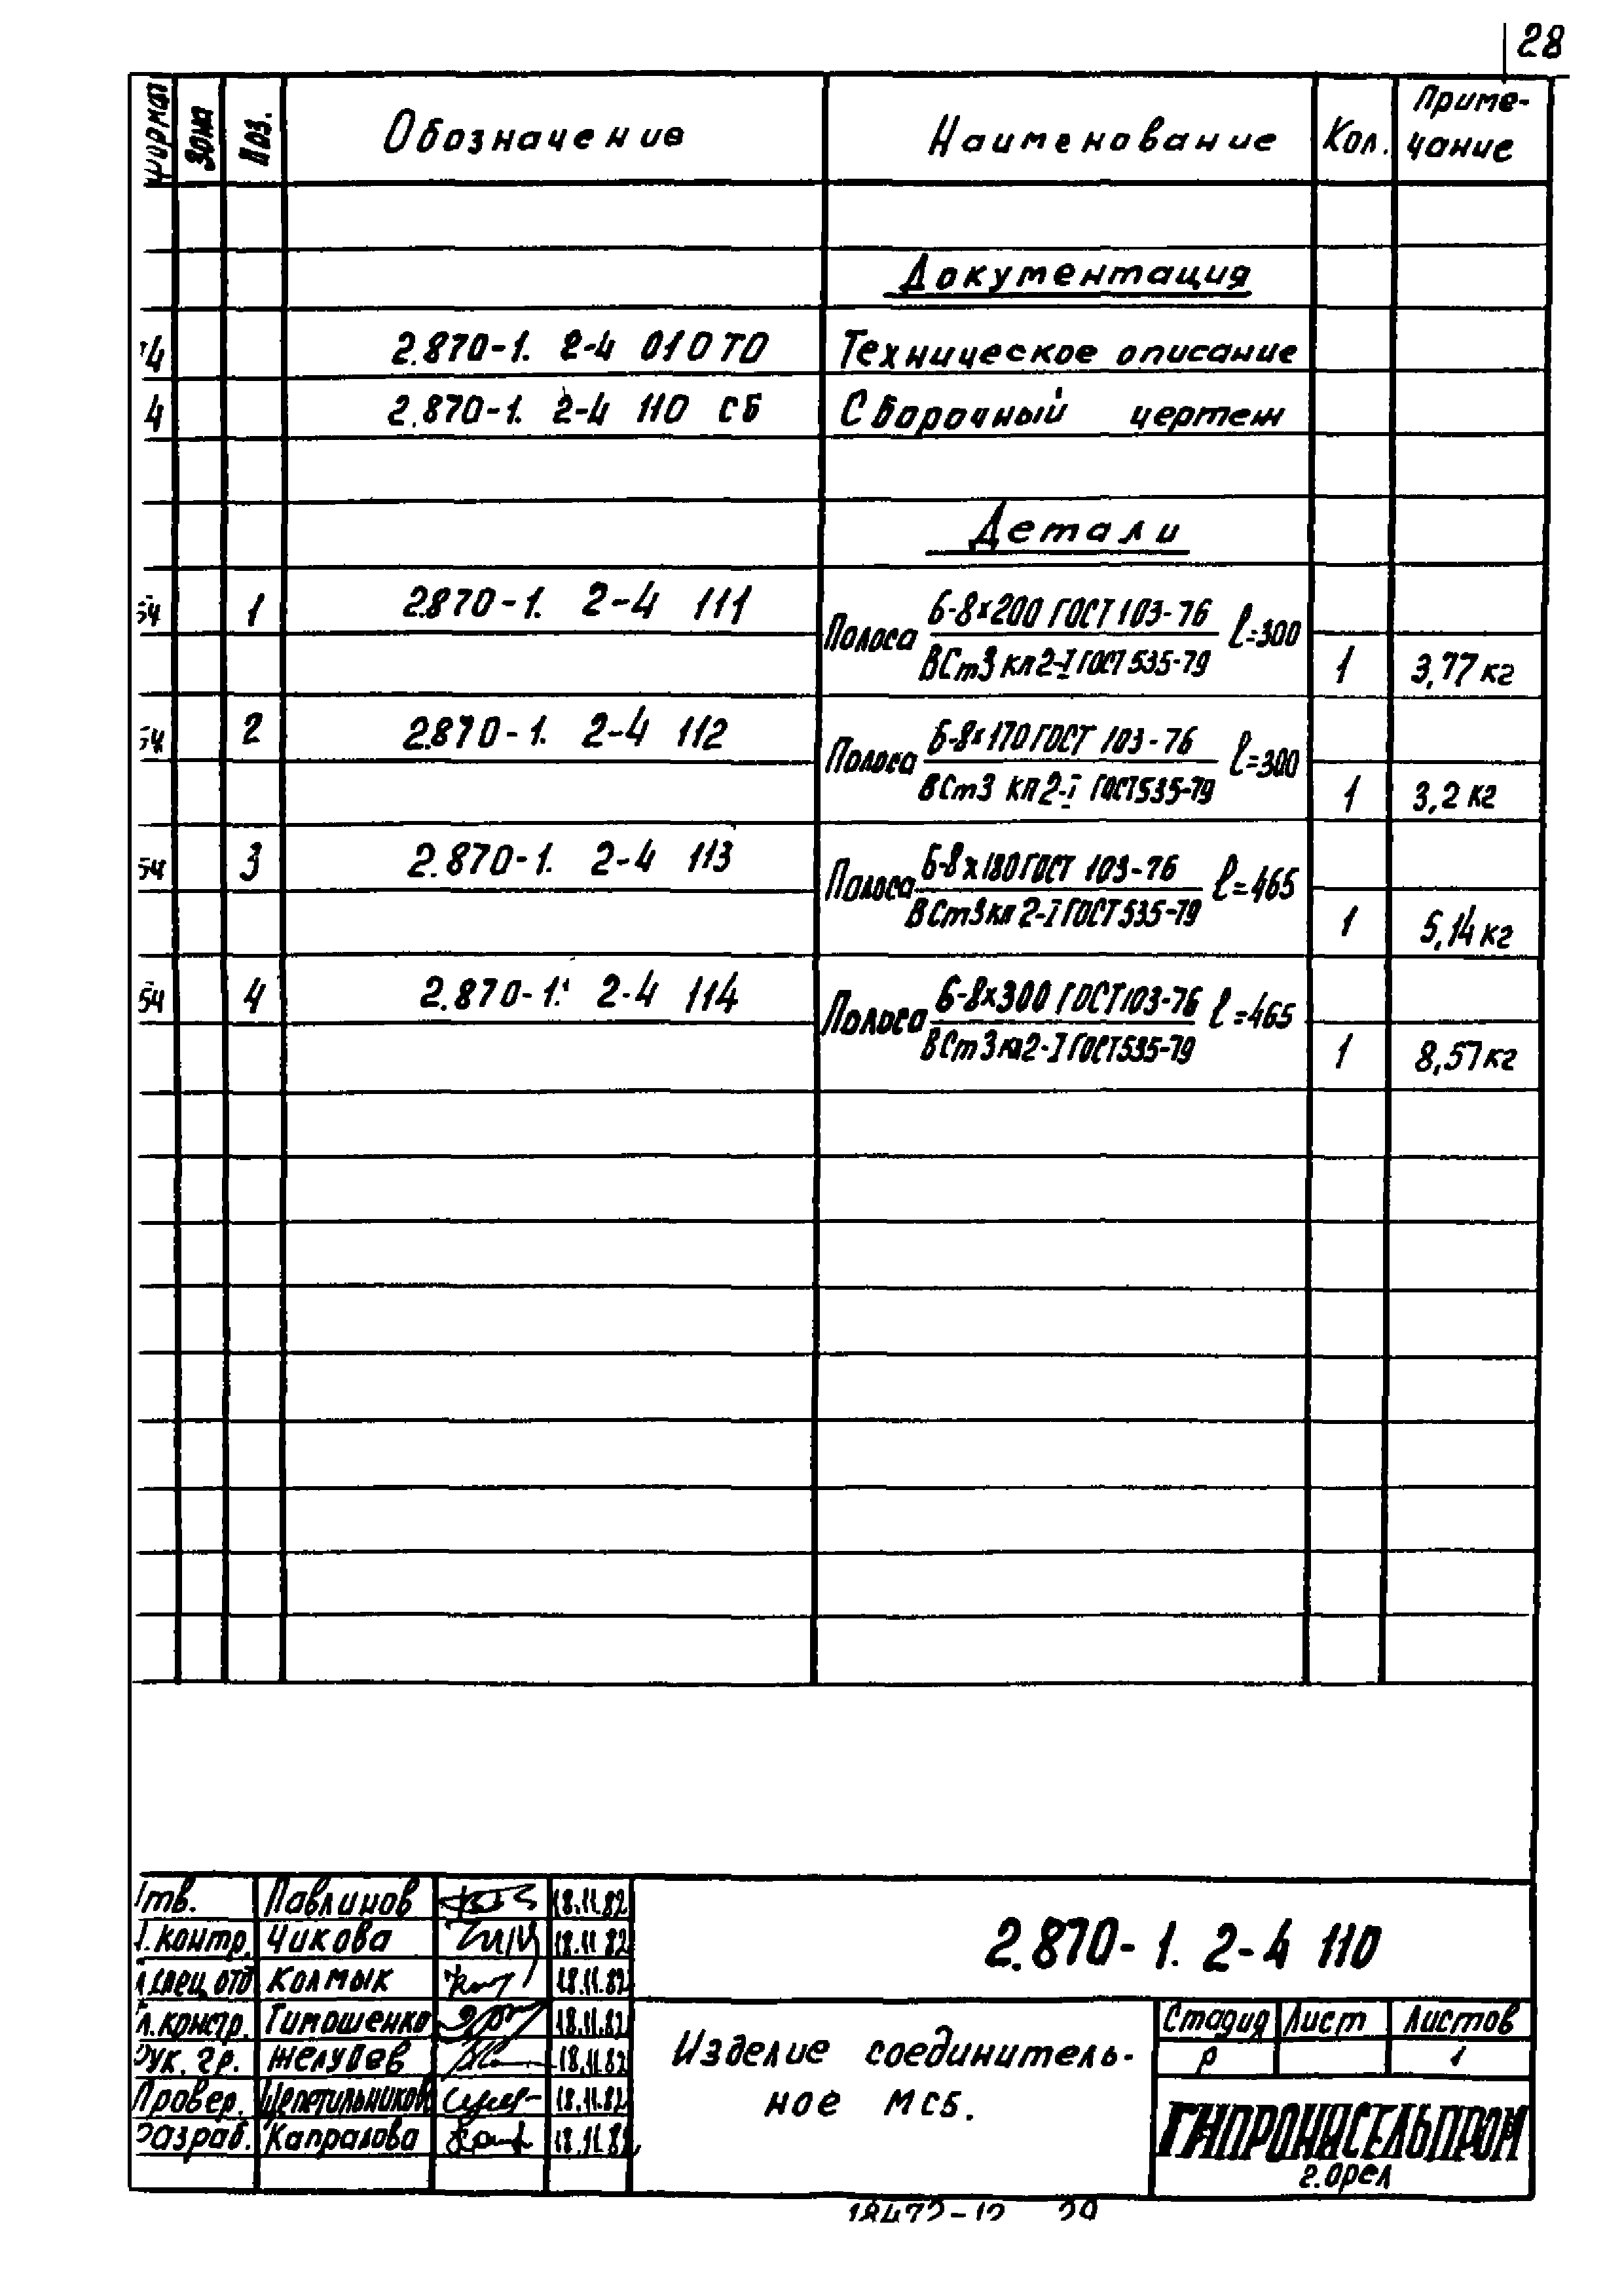 28
Формат Зона Поз. Обозначение Наименование Кол. Приме-
чание
Документация
4 2.870-1. 2-4 010 ТО Техническое описание
4 2.870-1. 2-4 110 СБ Сборочный чертеж
Детали
1 2.870-1. 2-4 111 Полоса Б-8х200 ГОСТ 103-76 ℓ=300
ВСт3 кп2-I ГОСТ 535-79 1 3,77 кг
2 2.870-1. 2-4 112 Полоса Б-8х170 ГОСТ 103-76 ℓ=300
ВСт3 кп2-I ГОСТ 535-79 1 3,2 кг
3 2.870-1. 2-4 113 Полоса Б-8х180 ГОСТ 103-76 ℓ=465
ВСт3кп 2-I ГОСТ 535-79 1 5,14 кг
4 2.870-1. 2-4 114 Полоса Б-8х300 ГОСТ 103-76 ℓ=465
ВСт3кп2-I ГОСТ 535-79 1 8,57 кг
тв. Павлинов 18.11.82
.контр. Чикова 18.11.82
спец. отд Колмык 18.11.82
л.констр. Тимошенко 18.11.82
Рук. гр. Желудев 18.11.82
Провер. Щепетильников 18.11.82
Разраб. Капралова 18.11.82
2.870-1. 2-4 110
Изделие соединитель-
ное МС6.
Стадия Лист Листов
Р 1
ГИПРОНИСЕЛЬПРОМ
г. Орел
18472-12 29